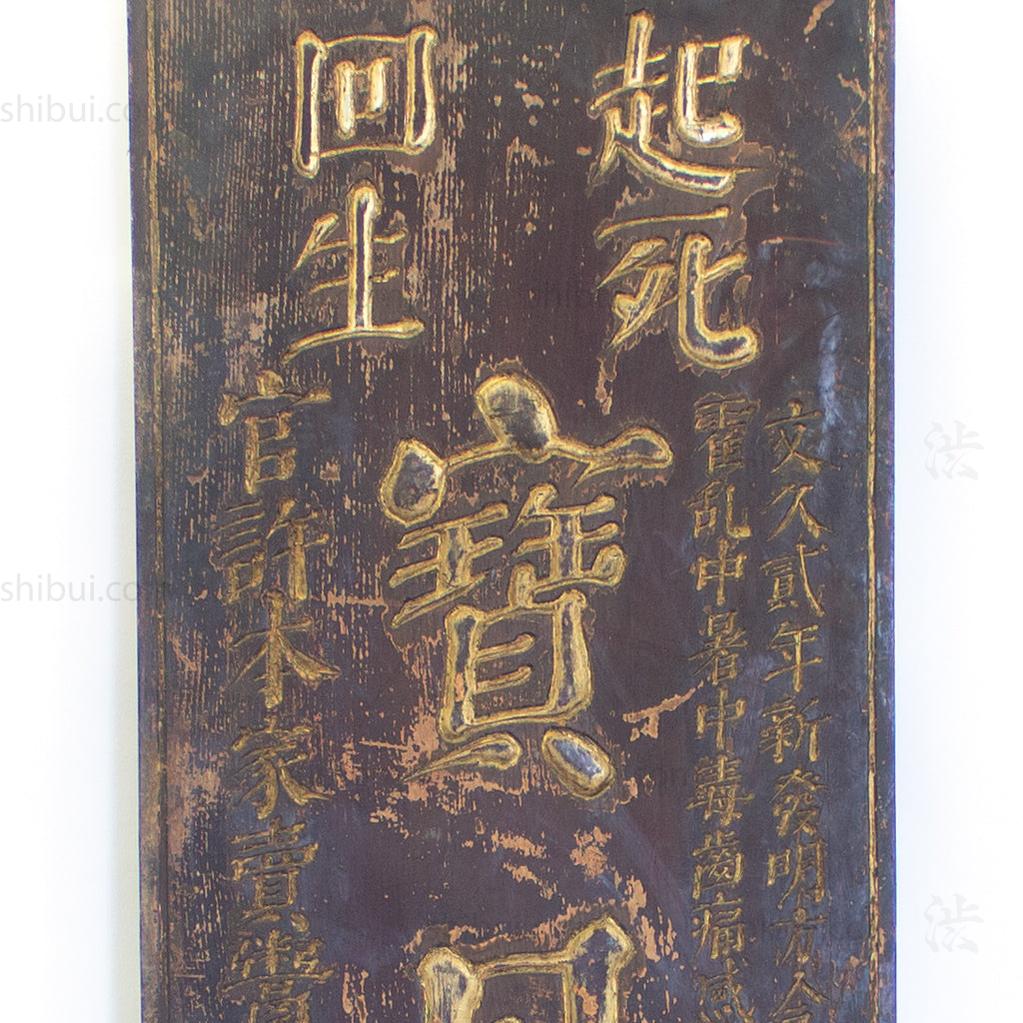 起死
回生
文久貳年新發明方合
霍乱中暑中毒齒痛感
寶
官許本家賣
shibui.co
shibui.com
渋
渋